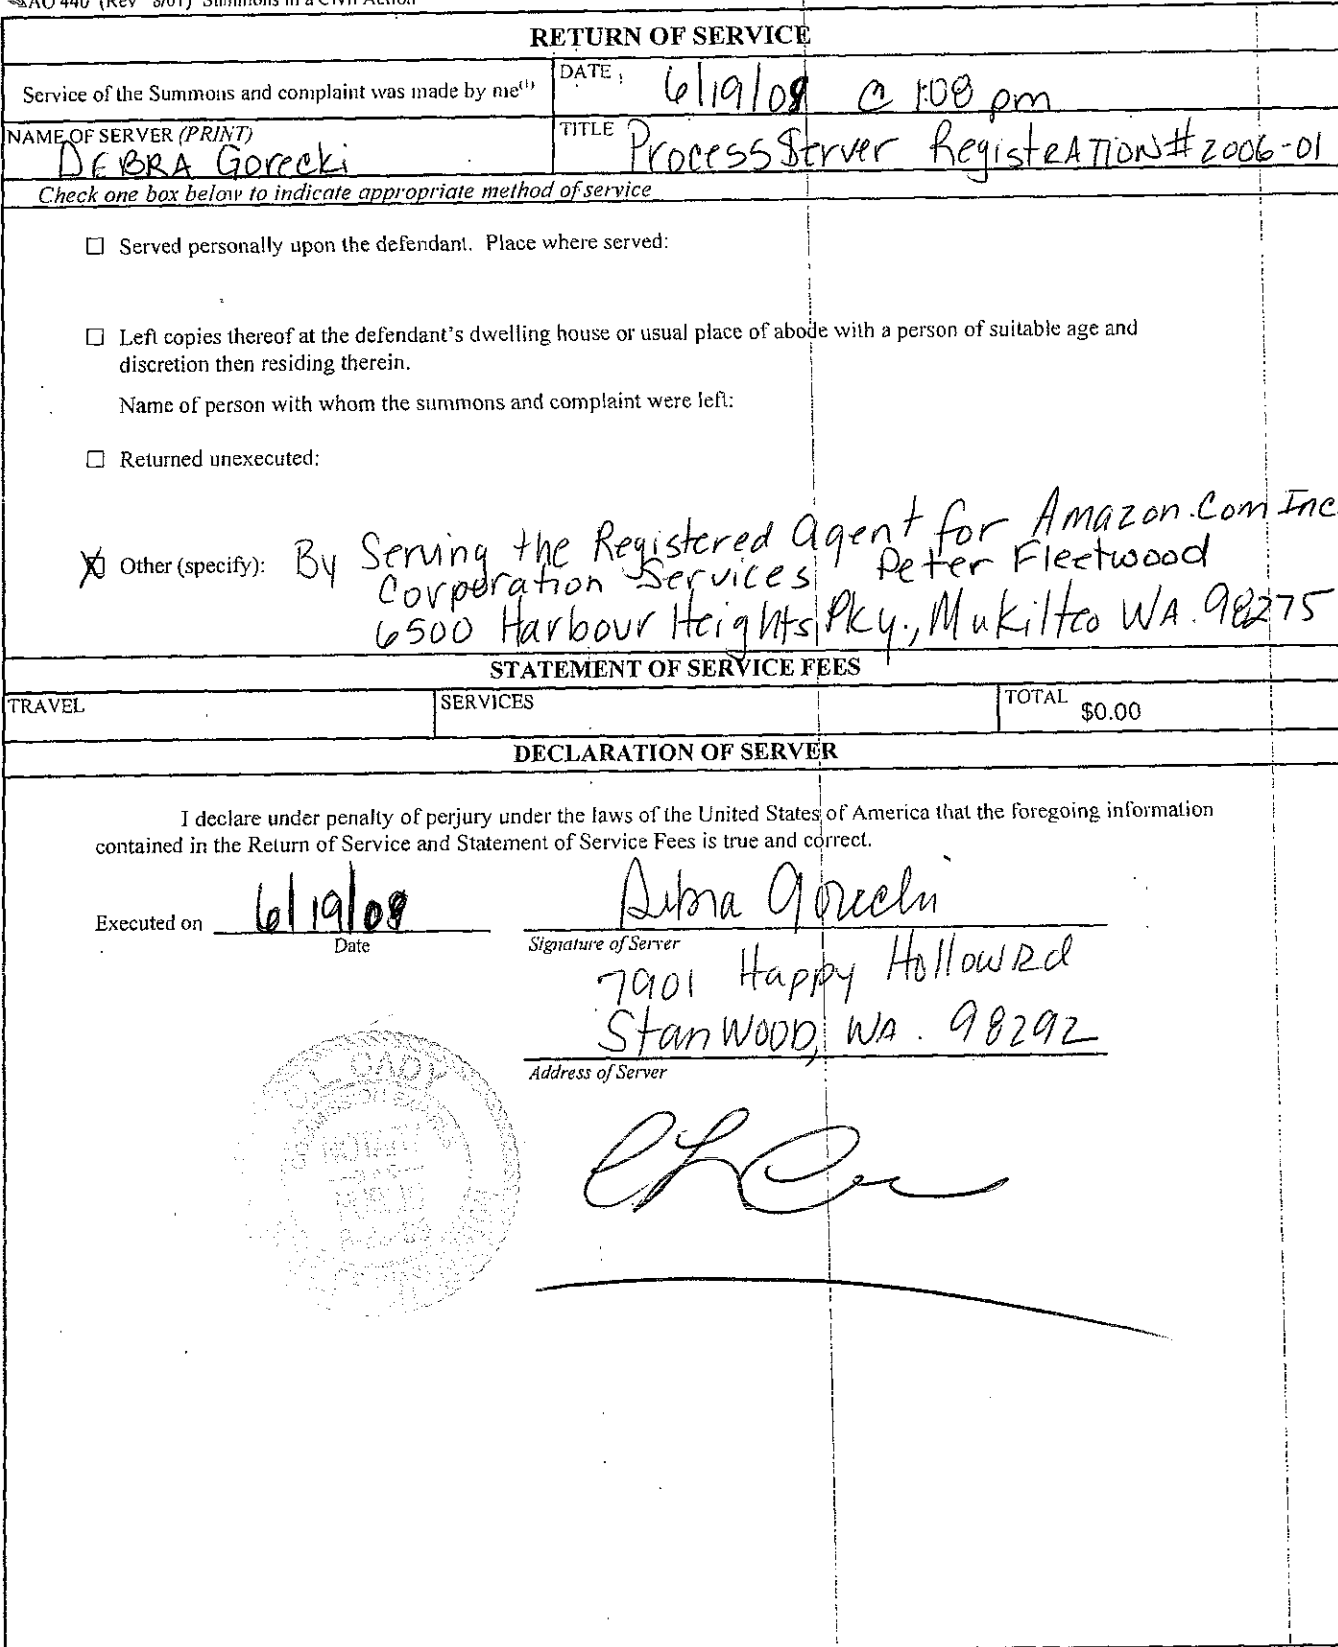 AO 440 (Rev 8/01) Summons in a Civil Action
RETURN OF SERVICE
Service of the Summons and complaint was made by me(1)
DATE
6/19/08 @ 1:08 pm
NAME OF SERVER (PRINT)
DEBRA Gorecki
TITLE
Process Server RegisteATION# 2006-01
Check one box below to indicate appropriate method of service
☐ Served personally upon the defendant. Place where served:
☐ Left copies thereof at the defendant's dwelling house or usual place of abode with a person of suitable age and
discretion then residing therein.
Name of person with whom the summons and complaint were left:
☐ Returned unexecuted:
☒ Other (specify): By Serving the Registered Agent for Amazon.Com Inc.
Corporation Services Peter Fleetwood
6500 Harbour Heights Pky., Mukilteo WA. 98275
STATEMENT OF SERVICE FEES
TRAVEL
SERVICES
TOTAL $0.00
DECLARATION OF SERVER
I declare under penalty of perjury under the laws of the United States of America that the foregoing information
contained in the Return of Service and Statement of Service Fees is true and correct.
Executed on 6/19/08
Date
Debra Gorecki
Signature of Server
7901 Happy Hollow Rd
StanWOOD, WA. 98292
Address of Server
L. CADY